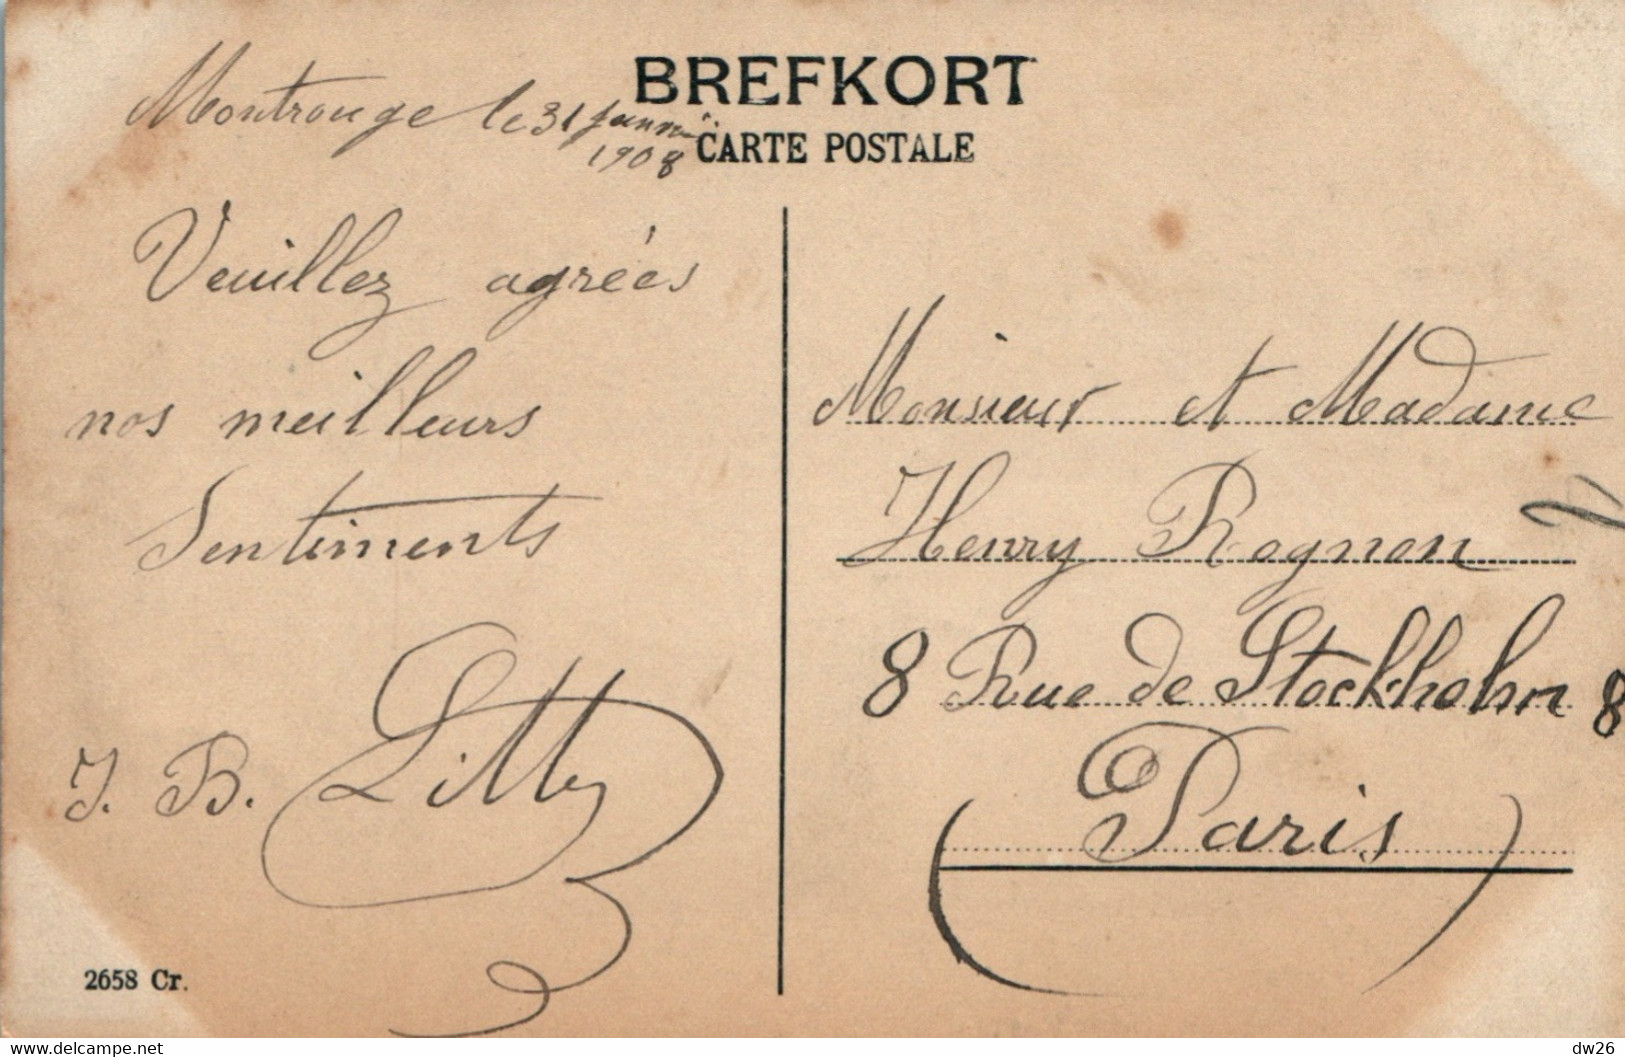 BREFKORT
CARTE POSTALE
Montrouge le 31 Janvier
1908
Veuillez agréés
nos meilleurs
Sentiments
J. B. Litty
Monsieur et Madame
Henry Rognon
8 Rue de Stockholm 8
Paris
2658 Cr.
delcampe.net
dw26